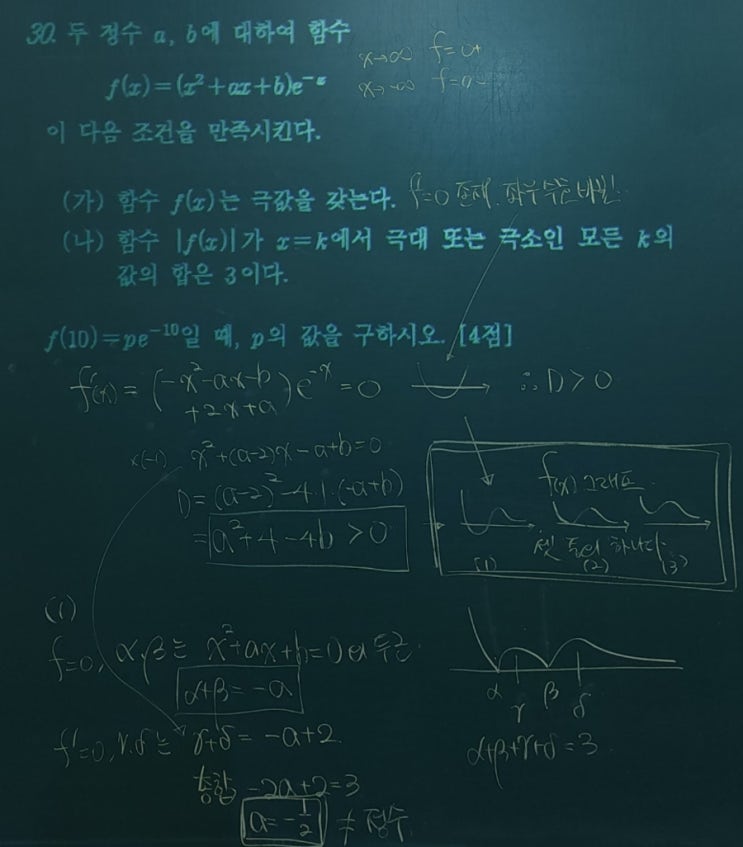 30. 두 정수 a, b에 대하여 함수
f(x)=(x²+ax+b)e⁻ˣ
x→∞ f=0+
x→-∞ f=∞
이 다음 조건을 만족시킨다.
(가) 함수 f(x)는 극값을 갖는다. f'=0 존재, 좌우 부호 바뀜.
(나) 함수 |f(x)|가 x=k에서 극대 또는 극소인 모든 k의
값의 합은 3이다.
f(10)=pe⁻¹⁰일 때, p의 값을 구하시오. [4점]
f'(x) = (-x²-ax-b +2x+a) e⁻ˣ = 0 ∴ D>0
x(-1) x²+(a-2)x-a+b=0
D=(a-2)²-4·1·(-a+b)
= a²+4-4b >0
f(x) 그래프
셋 중의 하나다
(1) (2) (3)
(1)
f=0, α,β는 x²+ax+b=0의 두근.
α+β=-a
α γ β δ
f'=0, γ,δ는 γ+δ=-a+2
α+β+γ+δ=3
총합 -2a+2=3
a=-1/2 ≠ 정수